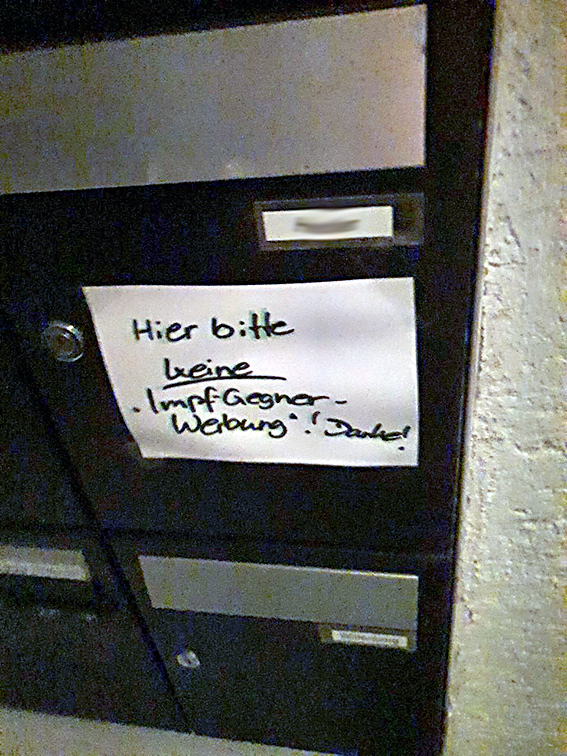 Hier bitte
keine
"Impf-Gegner-
Werbung"! Danke!